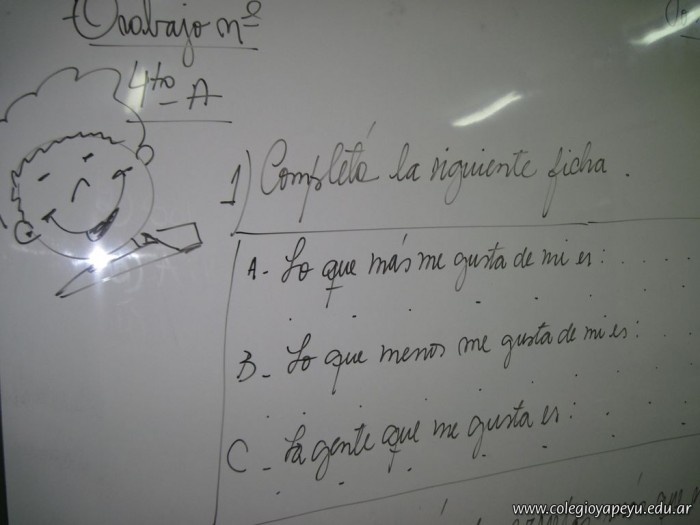 Trabajo nº
4to A
1) Completá la siguiente ficha.
A- Lo que más me gusta de mi es: . . . .
B- Lo que menos me gusta de mi es: . .
C- La gente que me gusta es: . . . .
www.colegioyapeyu.edu.ar